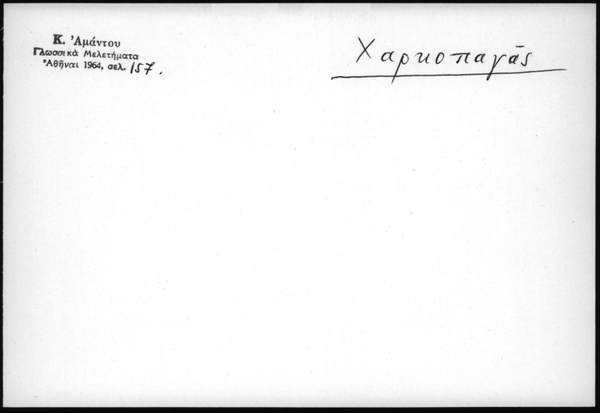 Κ. Ἀμάντου
Γλωσσικά Μελετήματα
Ἀθῆναι 1964, σελ. 157.
Χαρκοπαγᾶς